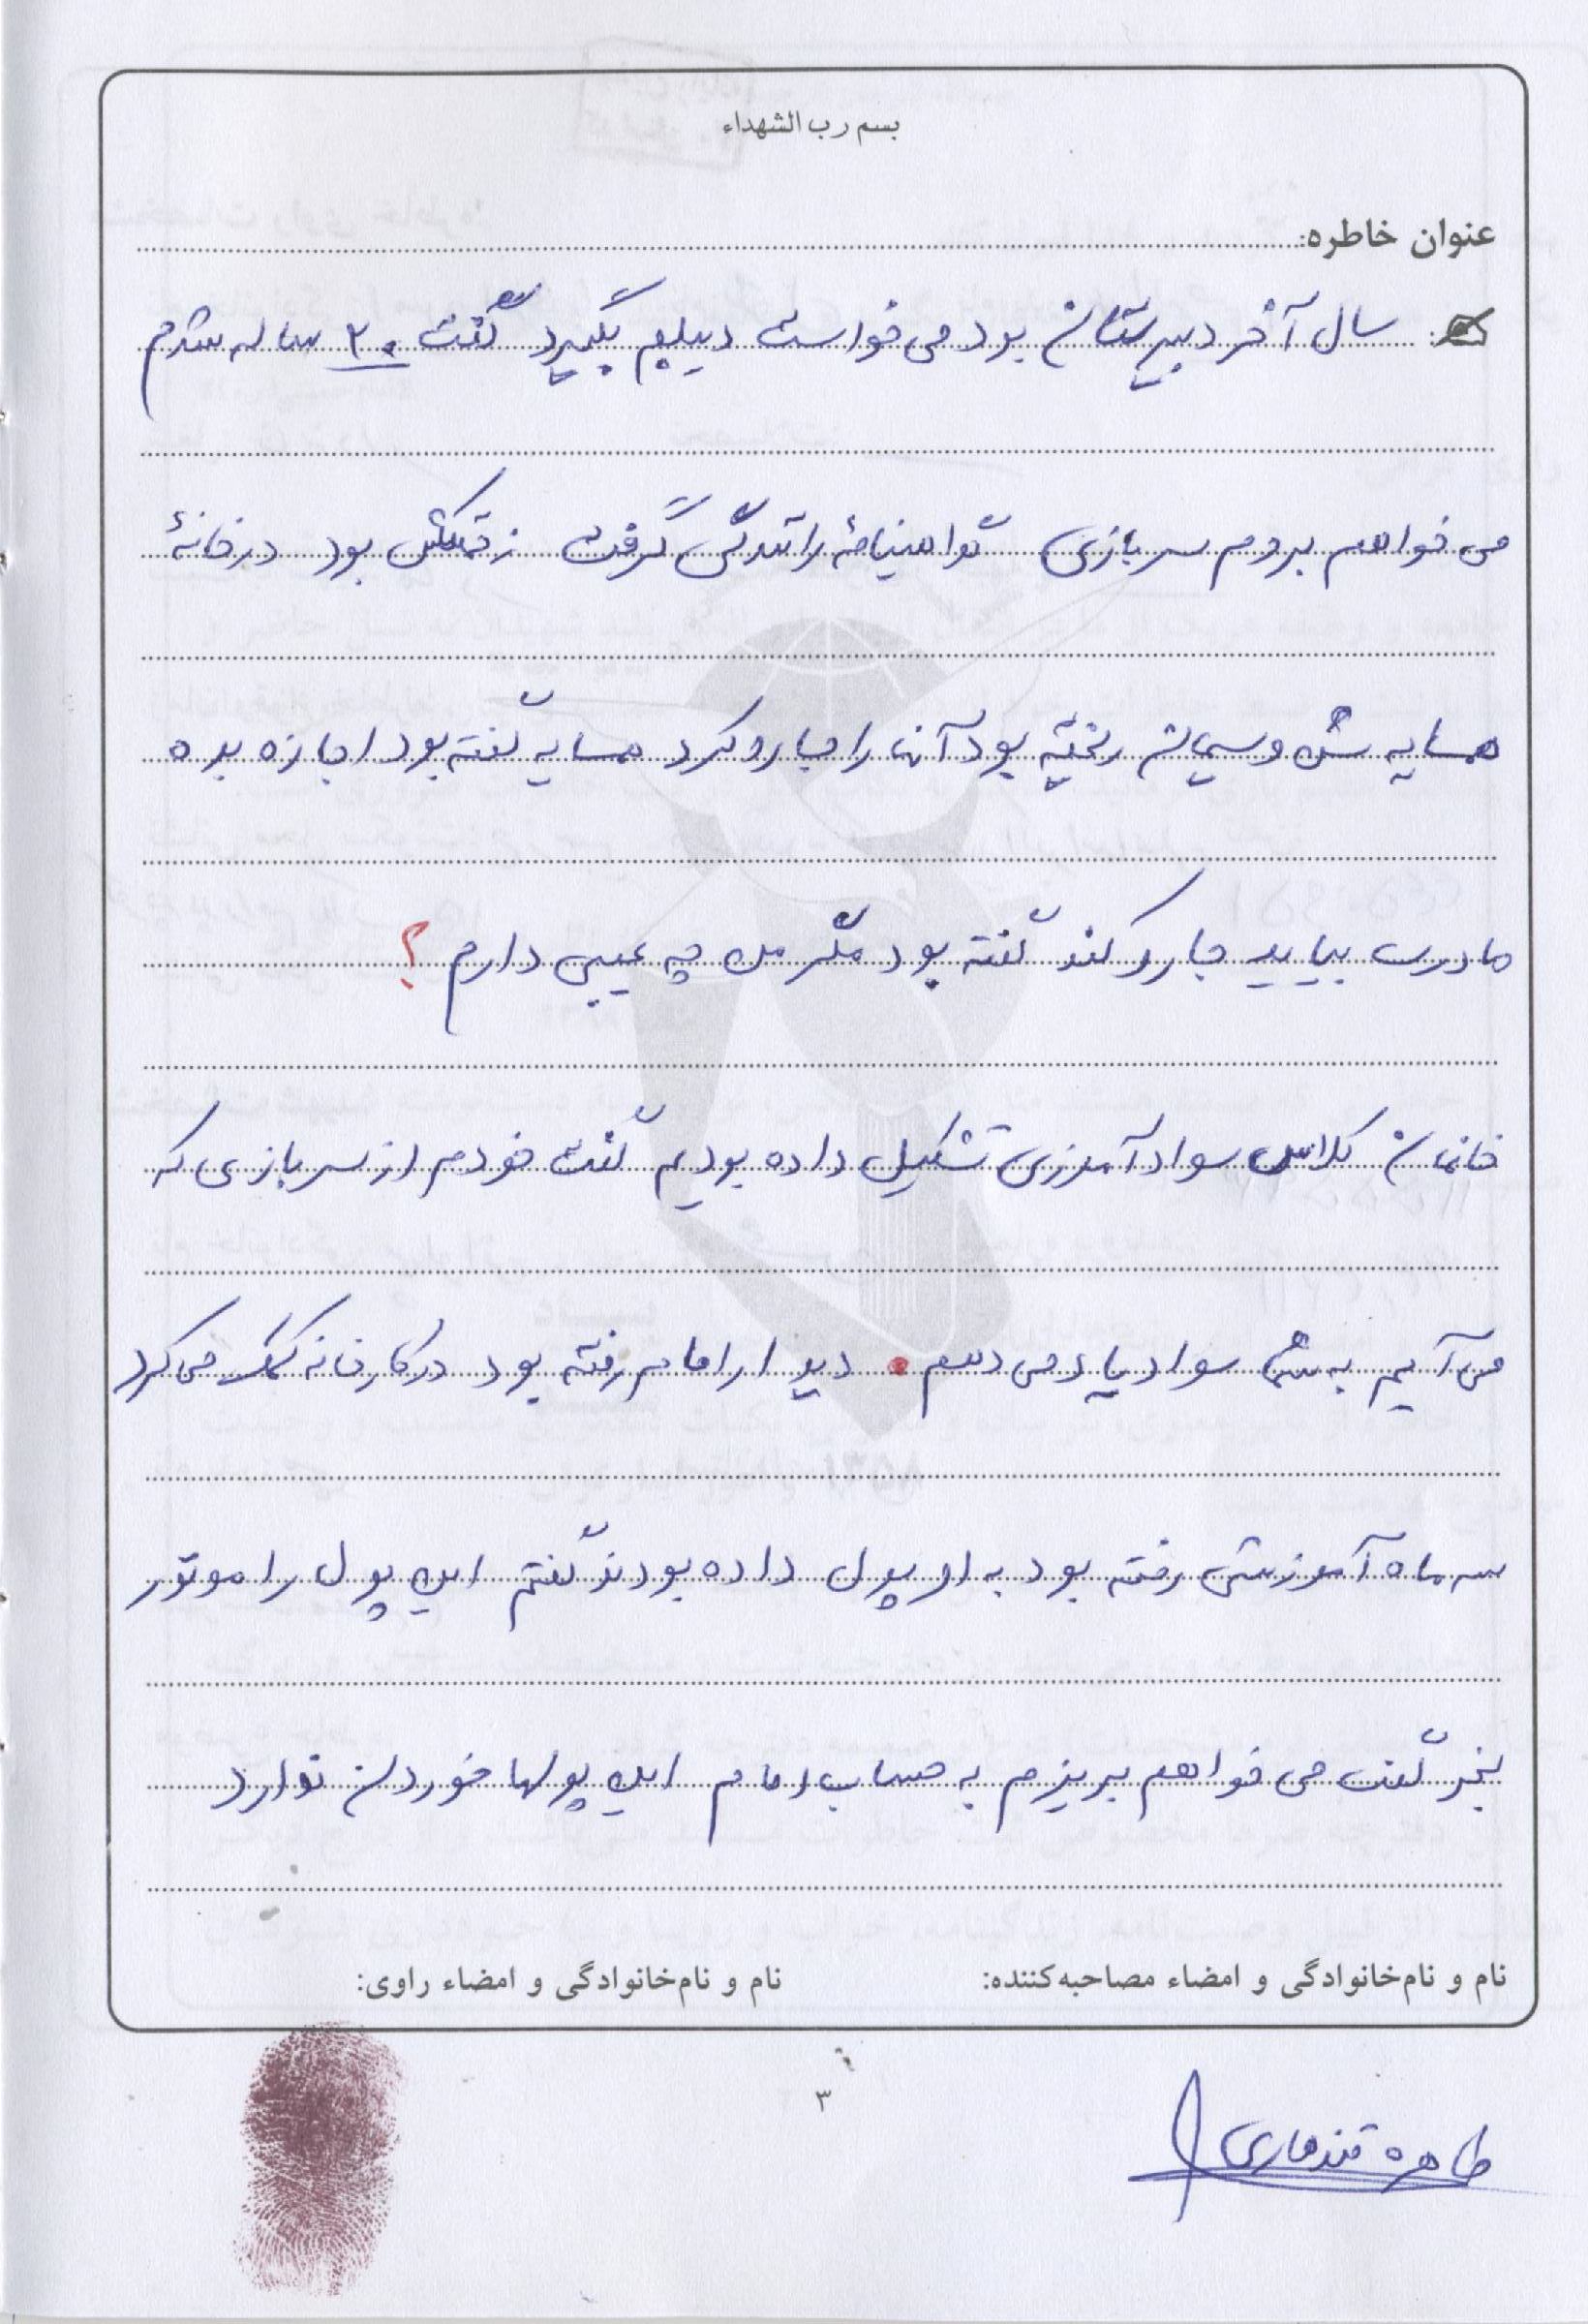 بسم رب الشهداء
عنوان خاطره:
سال آخر دبیرستان بود می خواست دیپلم بگیرد گفت ۲۰ ساله شدم
می خواهم بروم سربازی گواهینامهٔ رانندگی گرفت زحمتکش بود در خانهٔ
همسایه شن و سیمان ریخته بود آنها را جارو کرد همسایه گفته بود اجازه بده
مادرت بیاید جارو کند گفته بود مگر من چه عیبی دارم؟
خانمان کلاس سواد آموزی تشکیل داده بودیم گفت خودم از سربازی که
می آیم به شما سواد یاد می دهم. دیدار امام رفته بود در کارخانه کمک می کرد
سه ماه آموزشی رفته بود به او پول داده بودند گفتم این پول را موتور
بخر گفت می خواهم بریزم به حساب امام این پولها خوردن ندارد
نام و نام‌خانوادگی و امضاء مصاحبه‌کننده: نام و نام‌خانوادگی و امضاء راوی:
۳
طاهره قندهاری